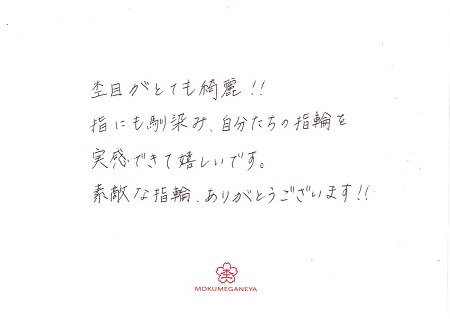 杢目がとても綺麗!!
指にも馴染み、自分たちの指輪を
実感できて嬉しいです。
素敵な指輪、ありがとうございます!!
杢
MOKUMEGANEYA